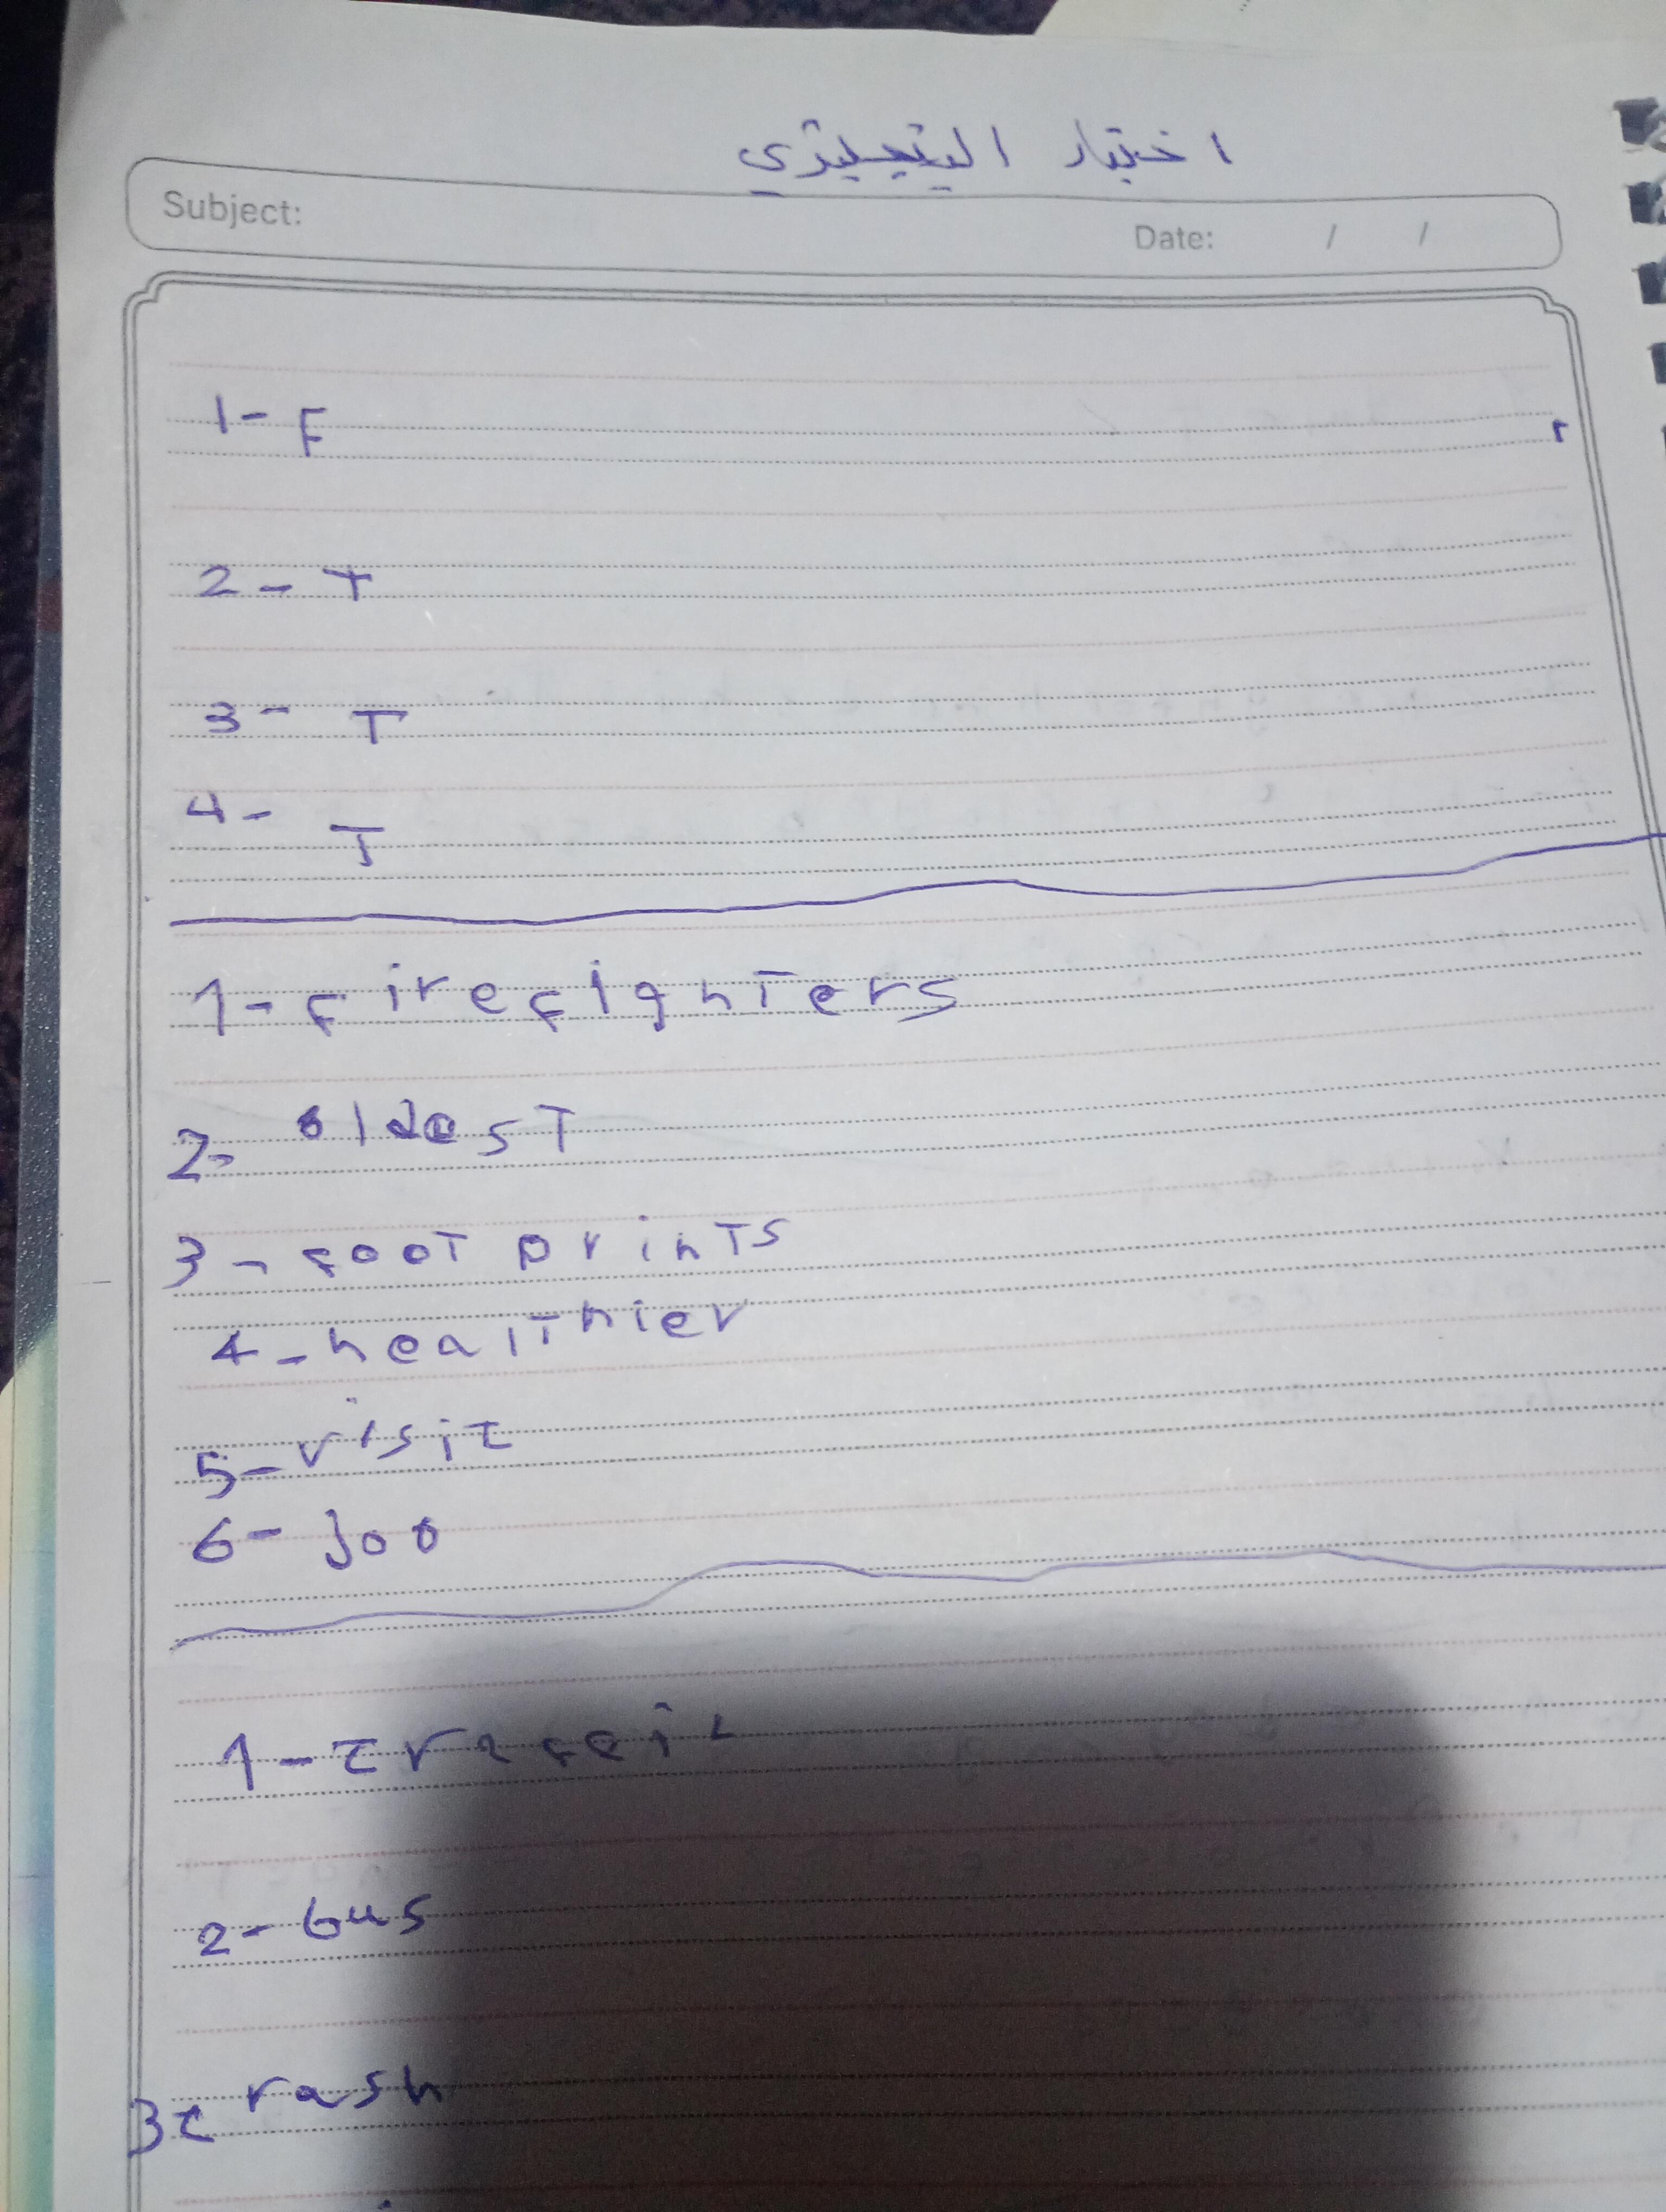 اختبار الانجليزي
Subject:
Date: / /
1- F
2- T
3- T
4- T
1- firefighters
2- oldest
3- foot prints
4- healthier
5- visit
6- Job
2- bus
3 rash